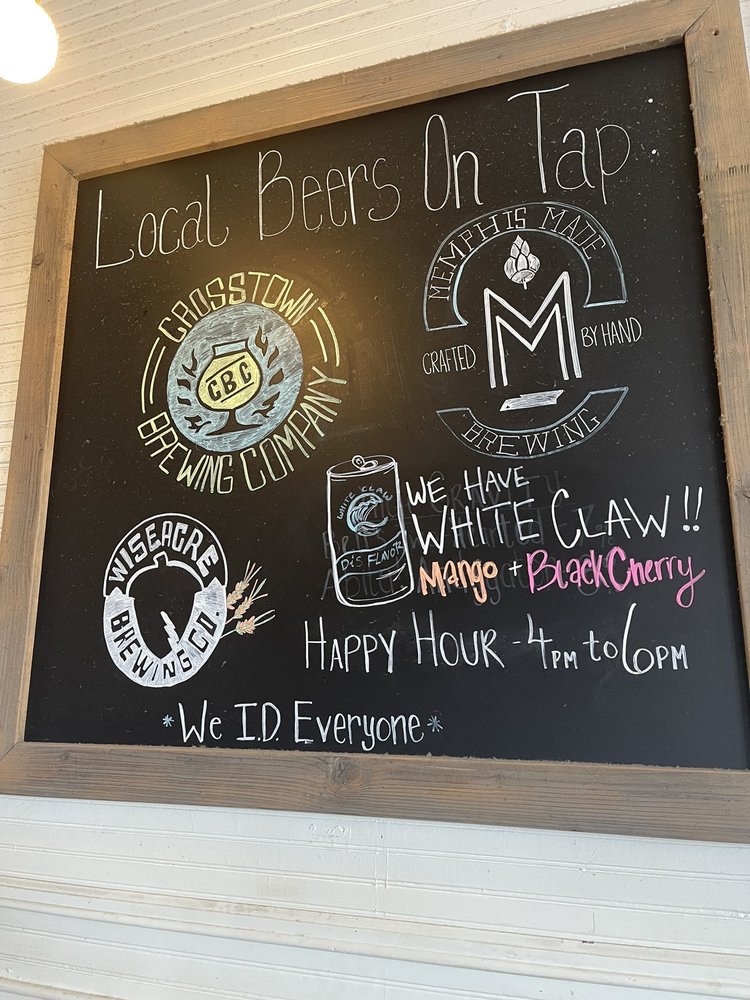 Local Beers On Tap
CROSSTOWN
CBC
BREWING COMPANY
MEMPHIS MADE
CRAFTED M BY HAND
BREWING
WHITE CLAW
Dis FLAVOR
WE HAVE
WHITE CLAW!!
Mango + Black Cherry
WISEACRE
BREWING CO.
HAPPY HOUR - 4PM to 6PM
*We I.D. Everyone*